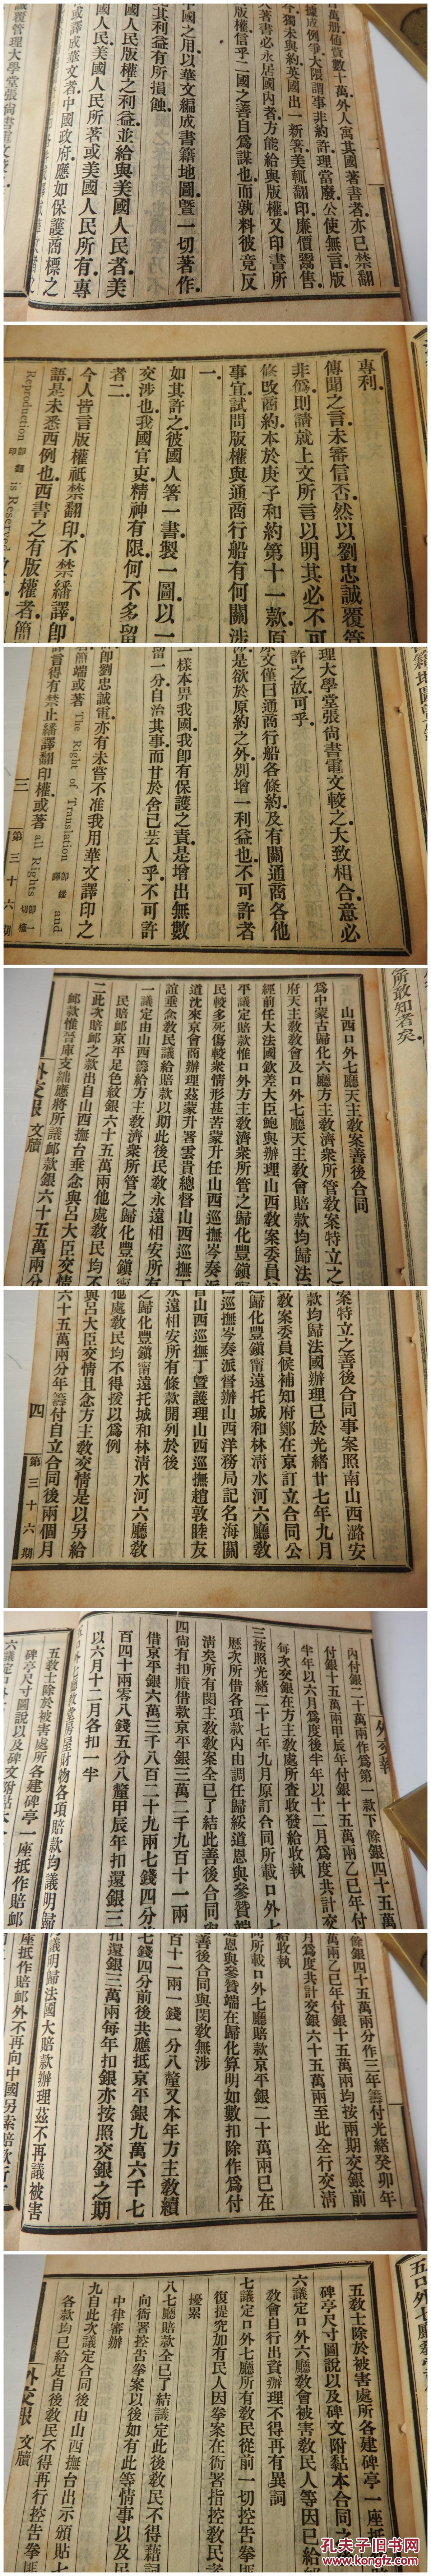 百萬册値貲數十萬外人寓其國著書者亦已禁翻
據成例爭大隈謂事非約許理當廢公使無言版
不獨未與約英國出一新著美輒翻印廉價鬻售
著書必永居國內者方能給與版權又印書所
版權信乎二國之善自爲謀也而孰料彼竟反
中國之用以華文編成書籍地圖曁一切著作
其利益有所損蝕
國人民版權之利益並給與美國人民者美
國人民美國人民所著或美國人民所有專
或譯成華文者中國政府應如保護商標之
議覆管理大學堂張尙書電文
專利
傳聞之言未審信否然以劉忠誠覆管
非僞則請就上文所言以明其必不可
修改商約本於庚子和約第十一款原
事宜試問版權與通商行船有何關涉
一
如其許之彼國人著一書製一圖以一
交涉也我國官吏精神有限何不多留
者二
今人皆言版權祗禁翻印不禁繙譯卽
語是未悉西例也西書之有版權者簡
Reproduction 卽翻印 is Reserved
理大學堂張尙書電文較之大致相合意必
許之故可乎
原文僅曰通商行船各條約及有關通商各他
是欲於原約之外別增一利益也不可許者
一樣本畀我國我卽有保護之責是增出無數
留一分自治其事而甘於舍己芸人乎不可許
卽劉忠誠電亦有未嘗不准我用華文譯印之
簡端或著 The Right of Translation 卽繙譯 and
言得有禁止繙譯翻印權或著 all Rights 卽一切權
三
第三十六期
所敢知者矣
山西口外七廳天主教案善後合同
爲中蒙古歸化六廳方主教濟衆所管教案特立之
府天主教教會及口外七廳天主教會賠款均歸法
經前任大法國欽差大臣鮑與辦理山西教案委員
平議定賠款惟口外方主教濟衆所管之歸化豐鎭
民較多死傷較衆情形甚苦蒙升任山西巡撫岑奏派
道沈來京會商辦理茲蒙升署雲貴總督山西巡撫丁
誼垂念教民議給賠款以期此後民教永遠相安所有
一議定由山西籌給方主教濟衆所管之歸化豐鎭
民賠卹京平足色紋銀六十五萬兩他處教民均不
二此次賠卹之款出自山西撫台垂念與呂大臣交情
卹款惟晉庫支絀應將所議卹款銀六十五萬兩分
外交報 文牘
案特立之善後合同事案照南山西潞安
款均歸法國辦理已於光緖廿七年九月
教案委員候補知府鄭在京訂立合同公
歸化豐鎭甯遠托城和林淸水河六廳教
巡撫岑奏派督辦山西洋務局記名海關
督山西巡撫丁曁護理山西巡撫趙敦睦友
永遠相安所有條款開列於後
之歸化豐鎭甯遠托城和林淸水河六廳教
他處教民均不得援以爲例
與呂大臣交情且念方主教交情是以另給
六十五萬兩分年籌付自立合同後兩個月
四
第三十六期
外交報
內付銀二十萬兩作爲第一款下餘銀四十五萬
付銀十五萬兩甲辰年付銀十五萬兩乙巳年付
半年以六月爲度後半年以十二月爲度共計交
每次交銀在方主教處所查收發給收執
三按照光緖二十七年九月原訂合同所載口外七
歷次所借各項款內由調任歸綏道恩與參贊端
淸矣所有閔主教教案全已了結此善後合同與
四尙有扣賸借款京平銀三萬二千九百十一兩
借京平銀六萬三千八百二十九兩七錢四分
百四十兩零八錢五分八釐甲辰年扣還銀三
以六月十二月各扣一半
口外七廳教堂房屋財物各項賠款均議明歸
五教士除於被害處所各建碑亭一座抵作賠卹
碑亭尺寸圖說以及碑文附黏本合
六議定口外
餘銀四十五萬兩分作三年籌付光緖癸卯年
萬兩乙巳年付銀十五萬兩均按兩期交銀前
月爲度共計交銀六十五萬兩至此全行交淸
給收執
同所載口外七廳賠款京平銀二十萬兩已在
道恩與參贊端在歸化算明如數扣除作爲付
善後合同與閔教無涉
百十一兩一錢一分八釐又本年方主教續
七錢四分前後共應抵京平銀九萬六千七
扣還銀三萬兩每年扣銀亦按照交銀之期
議明歸法國大賠款辦理茲不再議被害
座抵作賠卹外不再向中國另索賠款
五口外七廳教堂
五教士除於被害處所各建碑亭一座抵
碑亭尺寸圖說以及碑文附黏本合同之
六議定口外六廳教會被害教民人等因已給
教會自行出資辦理不得再有異詞
七議定口外七廳所有教民從前一切控告拳匪
復提究如有民人因拳案在衙署指控教民者
擾累
八七廳賠款全已了結議定此後教民不得藉詞
向衙署控告拳案以後如有此等情事以及民
中律審辦
九自此次議定合同後由山西撫台出示頒貼七
各款均已給足自後教民不得再行控告拳匪
外交報 文牘
孔夫子旧书网
kongfz.com